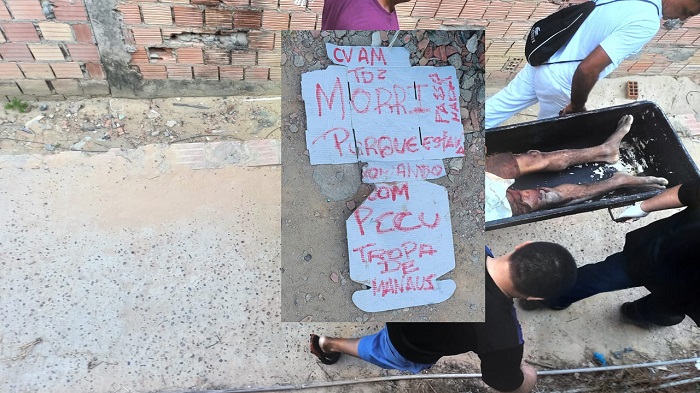 CV AM
TD2
MORRI
PORQUE ESTAVA
COM
PCCU
TROPA
DE
MANAUS